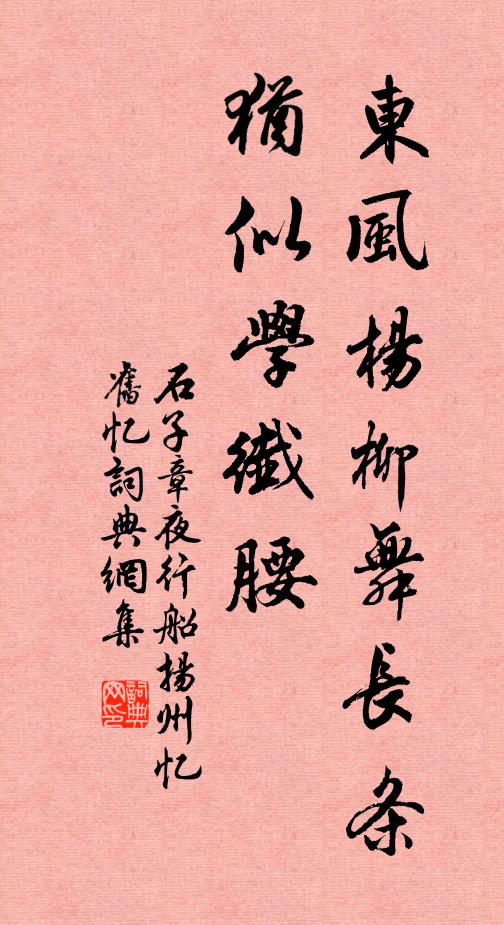 東風楊柳舞長条
猶似學纖腰
石子章夜行船揚州忆
舊忆詞典網集
詞典网印